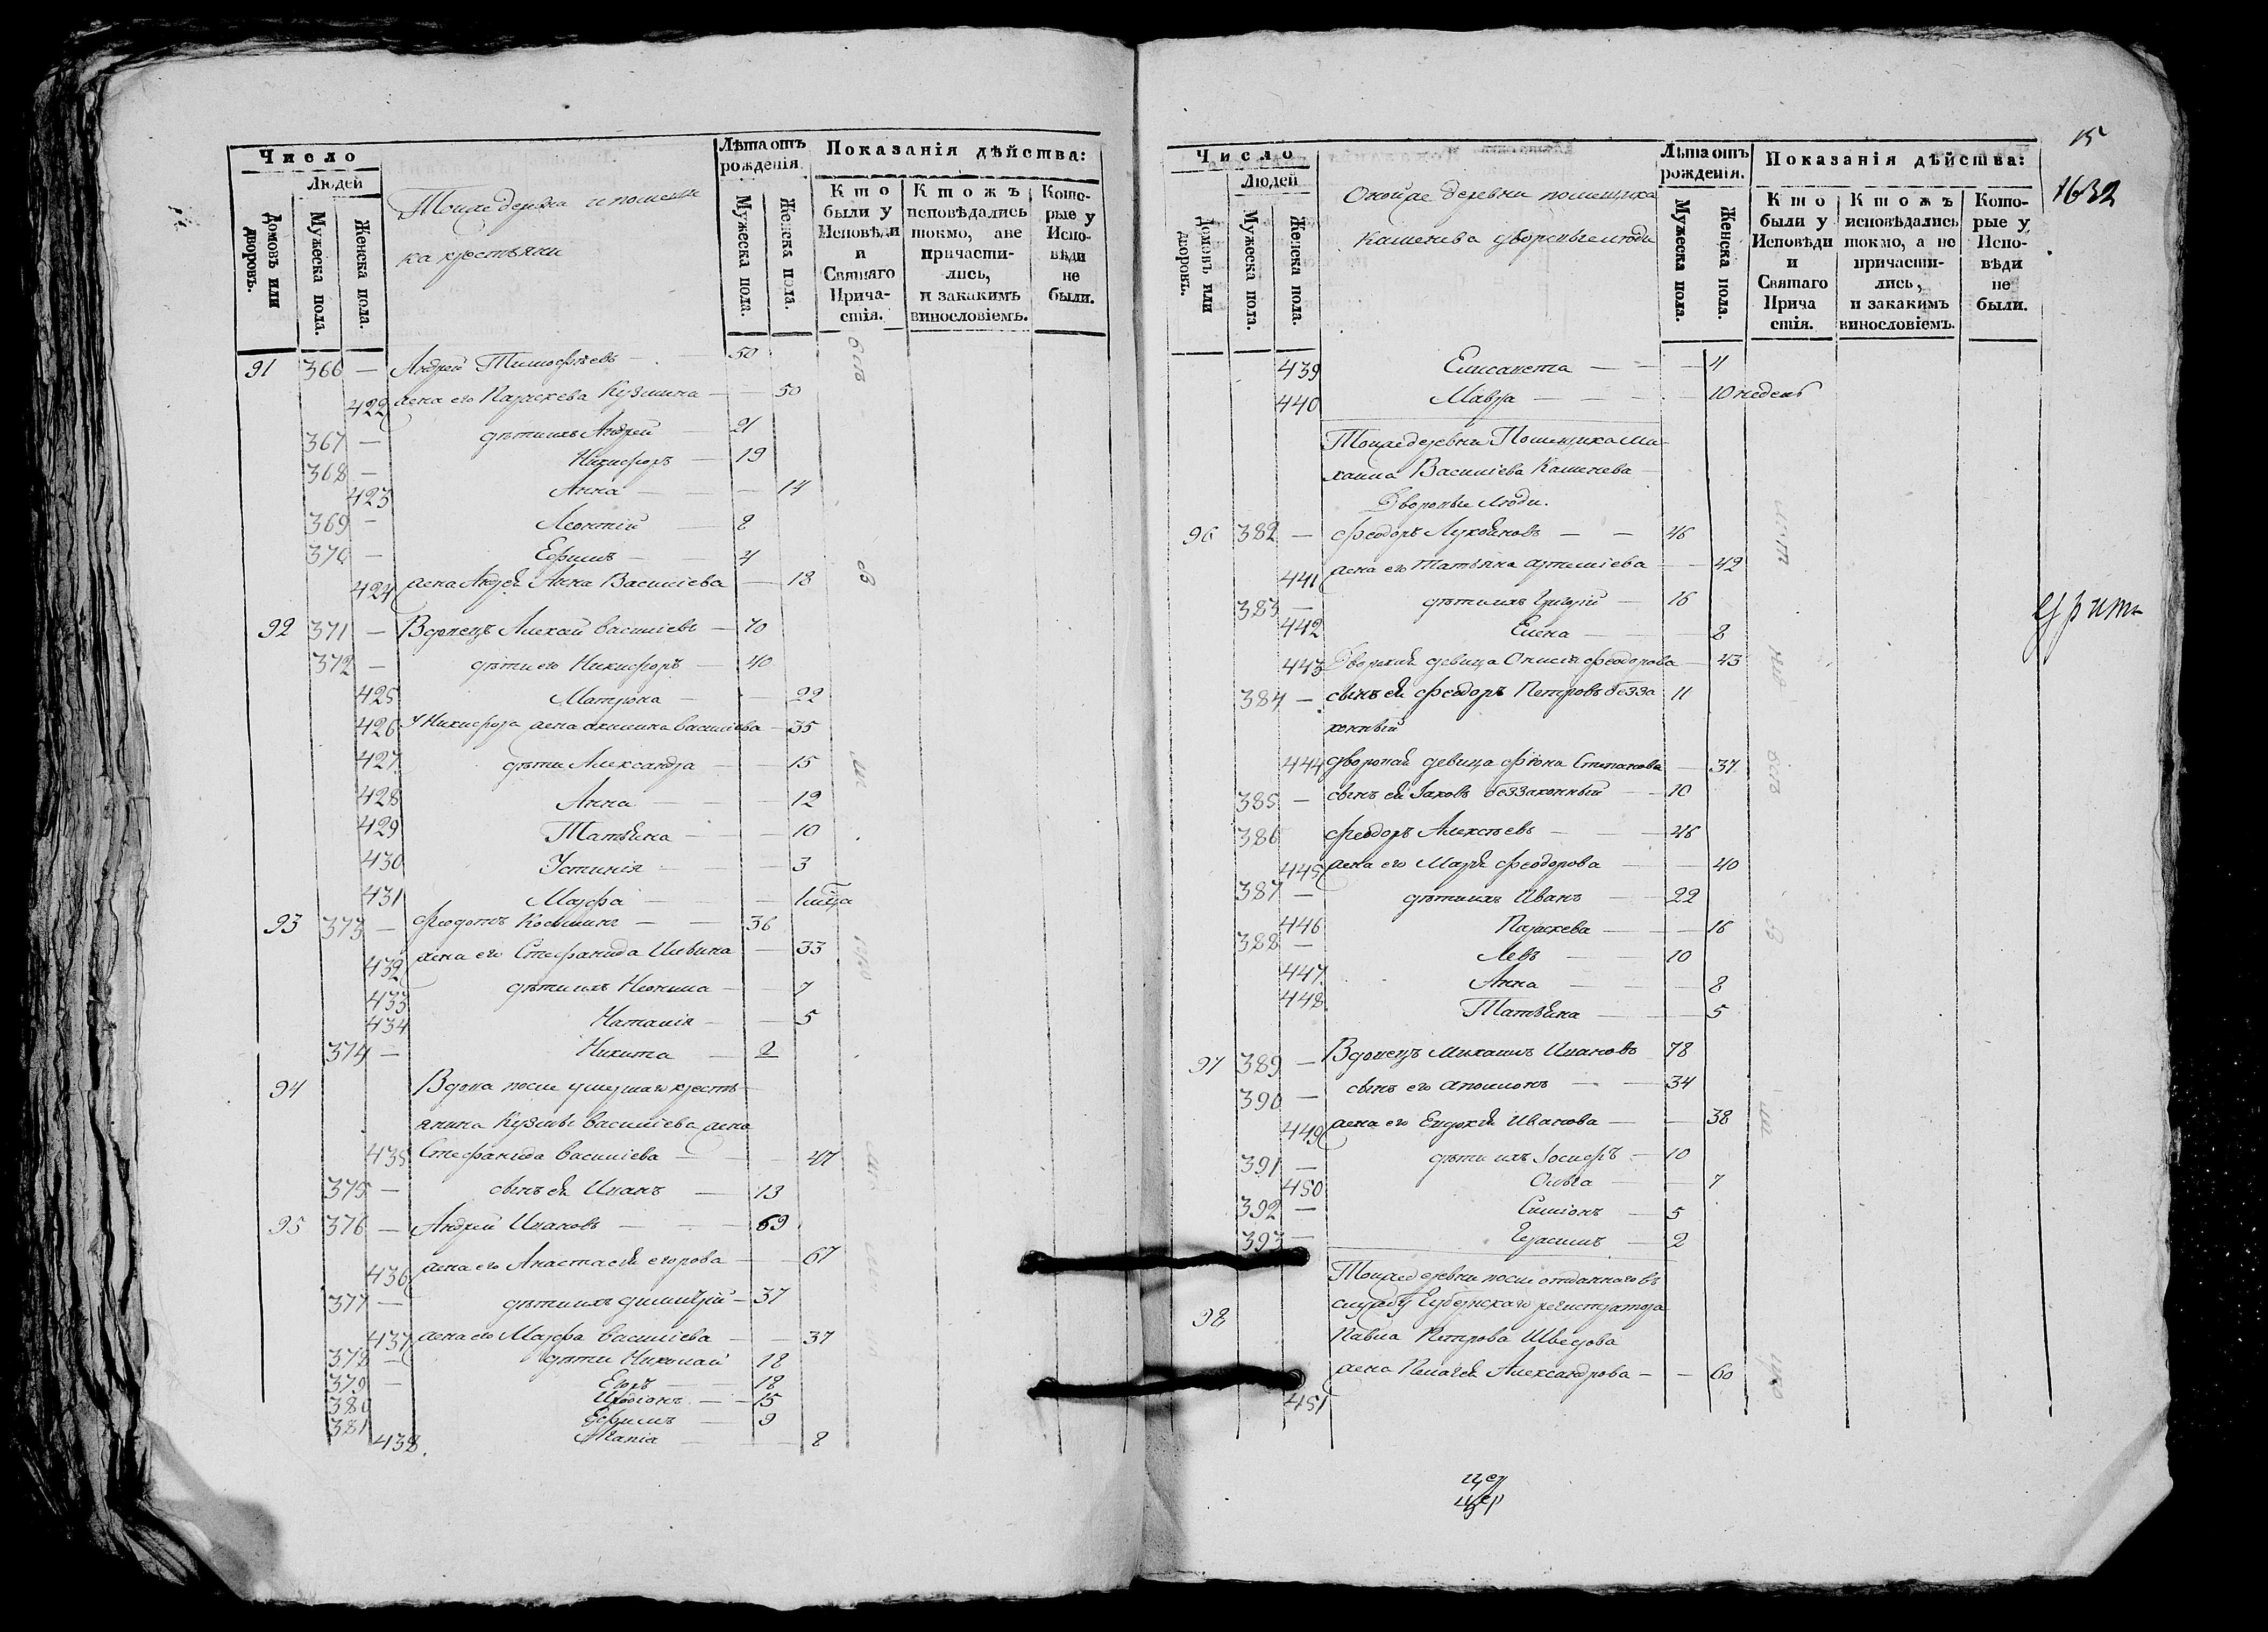 Число
Людей
Домовъ или дворовъ.
Мужеска пола.
Женска пола.
Тойже деревни и помещи
ка крестьяни
Лѣта отъ рожденія.
Мужеска пола.
Женска пола.
Показанія дѣйства:
Кто были у Исповѣди и Святаго Прича- стія.
Ктожъ исповѣдались токмо, а не причасти- лись, и закакимъ винословіемъ.
Кото- рые у Испо- вѣди не были.
91 366 — Андрей Тимофѣевъ — 50
422 жена его Параскева Кузмина — — 50
367 — дѣти ихъ Андрей — 21
368 — Никифоръ — 19
423 Анна — — — 14
369 — Леонтій — 8
370 — Ефимъ — 4
424 жена Андрея Анна Василіева — 18
92 371 — Вдовецъ Алексей Василіевъ — 70
372 — дѣти его Никифоръ — 40
425 Матрона — — 22
426 У Никифора жена Акилина Василіева — 35
427 дѣти Александра — — 15
428 Анна — — 12
429 Татьяна — — 10
430 Устинія — — 3
431 Марфа — —
93 373 — Феодотъ Косминъ — — 36
432 жена его Стефанида — 33
433 дѣти ихъ Неонила — — 7
434 Наталія — — 5
374 — Никита — 2
94 Вдова после умершаго кресть-
янина Кузмы Василіева жена
435 Стефанида Василіева — — 47
375 — сынъ ея Иванъ — 13
95 376 — Андрей Ивановъ — — 69
436 жена его Анастасія Егорова — — 67
377 — дѣти ихъ Димитрій — 37
437 жена его Марфа Василіева — — 37
378 — дѣти Николай 18
379 — Егоръ — 18
380 Иродіонъ — 15
381 Ефимъ — 9
438. — — 8
15
1632
Число
Людей
Домовъ или дворовъ.
Мужеска пола.
Женска пола.
Оной же деревни помещика
Кашенева дворовые люди
Лѣта отъ рожденія.
Мужеска пола.
Женска пола.
Показанія дѣйства:
Кто были у Исповѣди и Святаго Прича стія.
Ктожъ исповѣдались токмо, а не причасти- лись, и закакимъ винословіемъ.
Кото- рые у Испо- вѣди не были.
439 Елисавета — — — 4
440 Мавра — — — 10 недель
Тойже деревни Помещика Ми-
хаила Василіева Кашенева —
Дворовые люди.
96 382 — Феодоръ — — 46
441 жена его Татьяна Артеміева — — 42
383 — дѣти ихъ Григорій — 16
442 Елена — — 8
443 Дворовая девица Феодорова — 43
384 — сынъ ея Феодоръ Петровъ безза 11
конный
444 дворовая девица Стефанова — 37
385 — сынъ ея Іаковъ беззаконный — 10
386 Феодоръ Алексѣевъ — — 46
445 жена его Марія Феодорова — — 40
387 — дѣти ихъ Иванъ — 22
446 Параскева — — 16
388 — Левъ — 10
447 Анна — — 8
448 Татьяна — — 5
97 389 — Вдовецъ Михаилъ Ивановъ 78
390 — сынъ его Аполлонъ — — 34
449 жена его Евдокія Иванова — — 38
391 — дѣти ихъ Іосифъ — 10
450 Ольга — — 7
392 — Симіонъ — 5
393 — Герасимъ — 2
Тойже деревни после отданнаго въ
98 службу Губернскаго регистратора
Павла Петрова Шведова
451 жена Пелагея Александрова — — 60
цер
цер